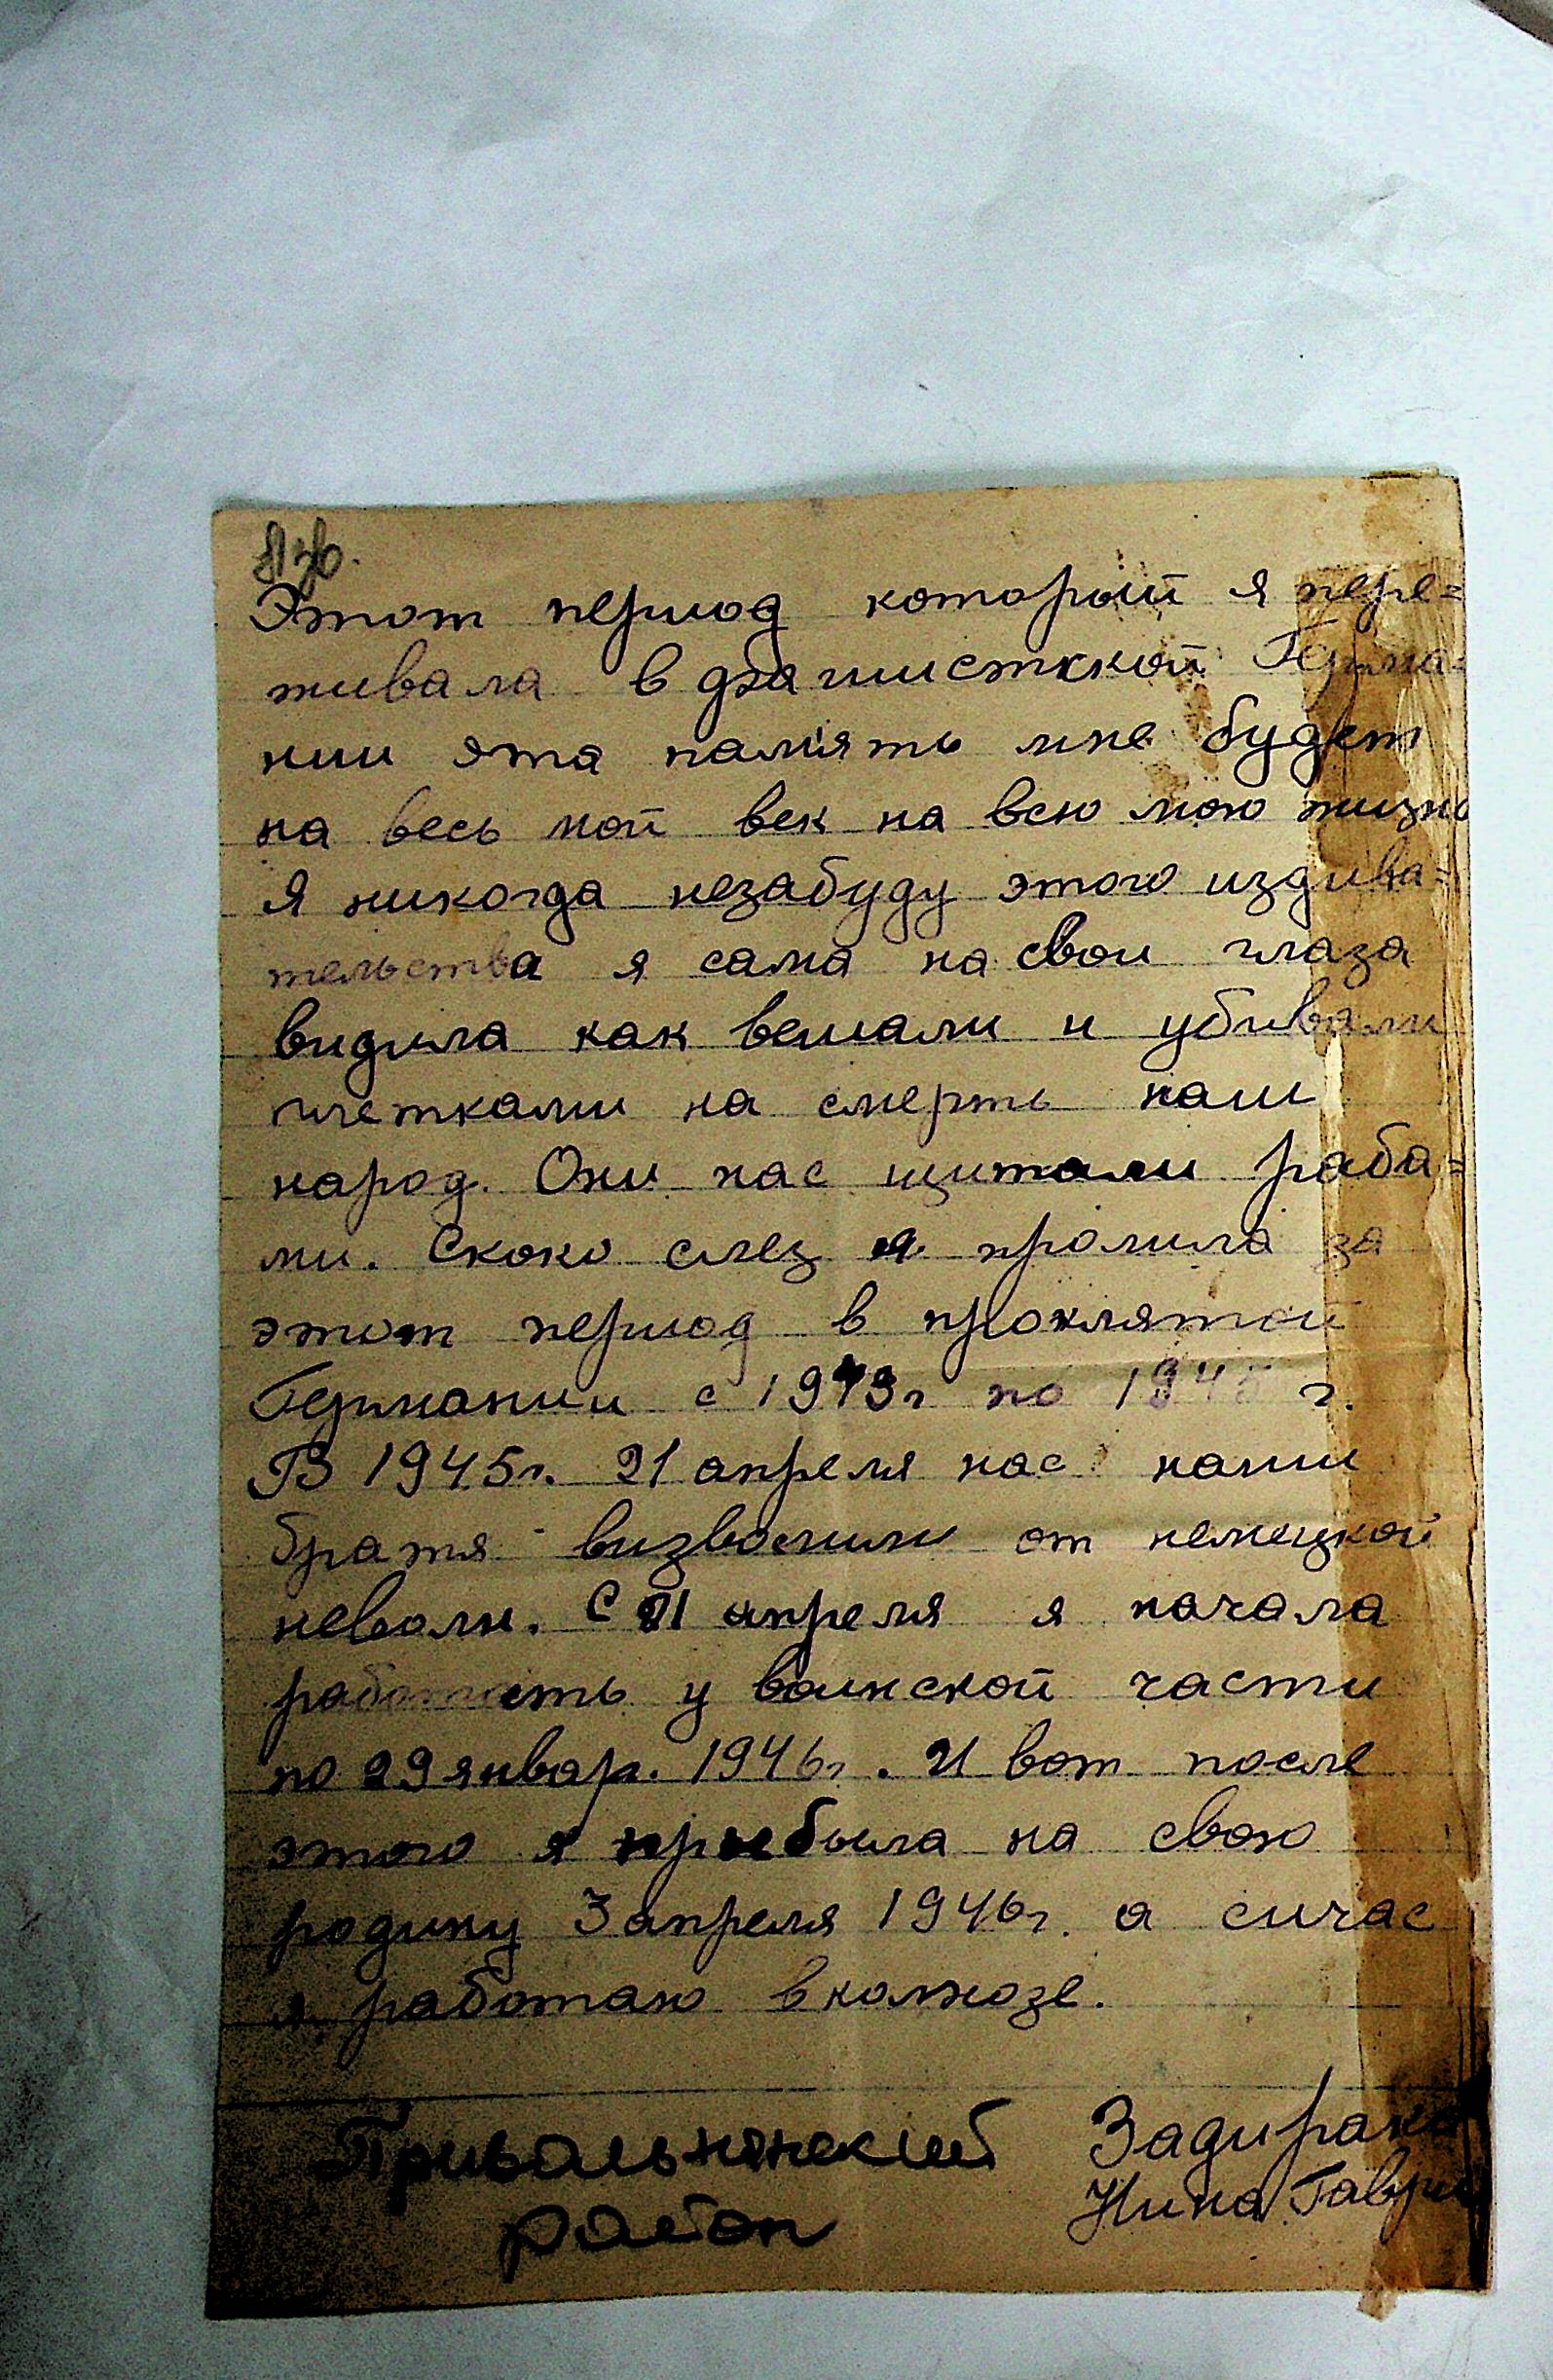 Этот период который я пере=
живала в фашисткской Герма=
нии эта память мне будет
на весь мой век на всю мою жизнь
Я никогда незабуду этого издива=
тельства я сама на свои глаза
видила как вешали и убивали
плетками на смерть наш
народ. Они нас щитали раба=
ми. Скоко слез я пролила за
этот период в проклятой
Германии с 1943г по 1945 г.
В 1945г. 21 апреля нас наши
братя визволили от немецкой
неволи. С 21 апреля я начала
работать у воинской части
по 29 январ. 1946г. И вот после
этого я прибыла на свою
родину 3 апреля 1946г. а сичас
я работаю в колхозе.
Привольнянский Задирако
район Нина Гаври